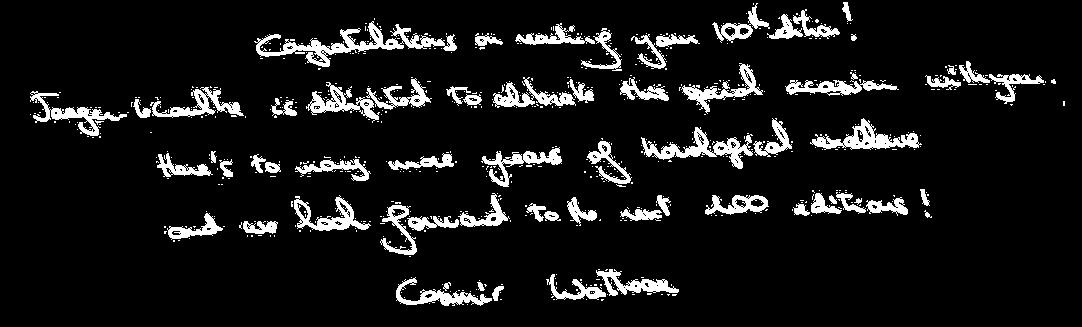 Congratulations on reaching your 100th edition!
Jaeger-leCoultre is delighted to celebrate this special occasion with you.
Here's to many more years of horological excellence
and we look forward to the next 200 editions!
Casimir